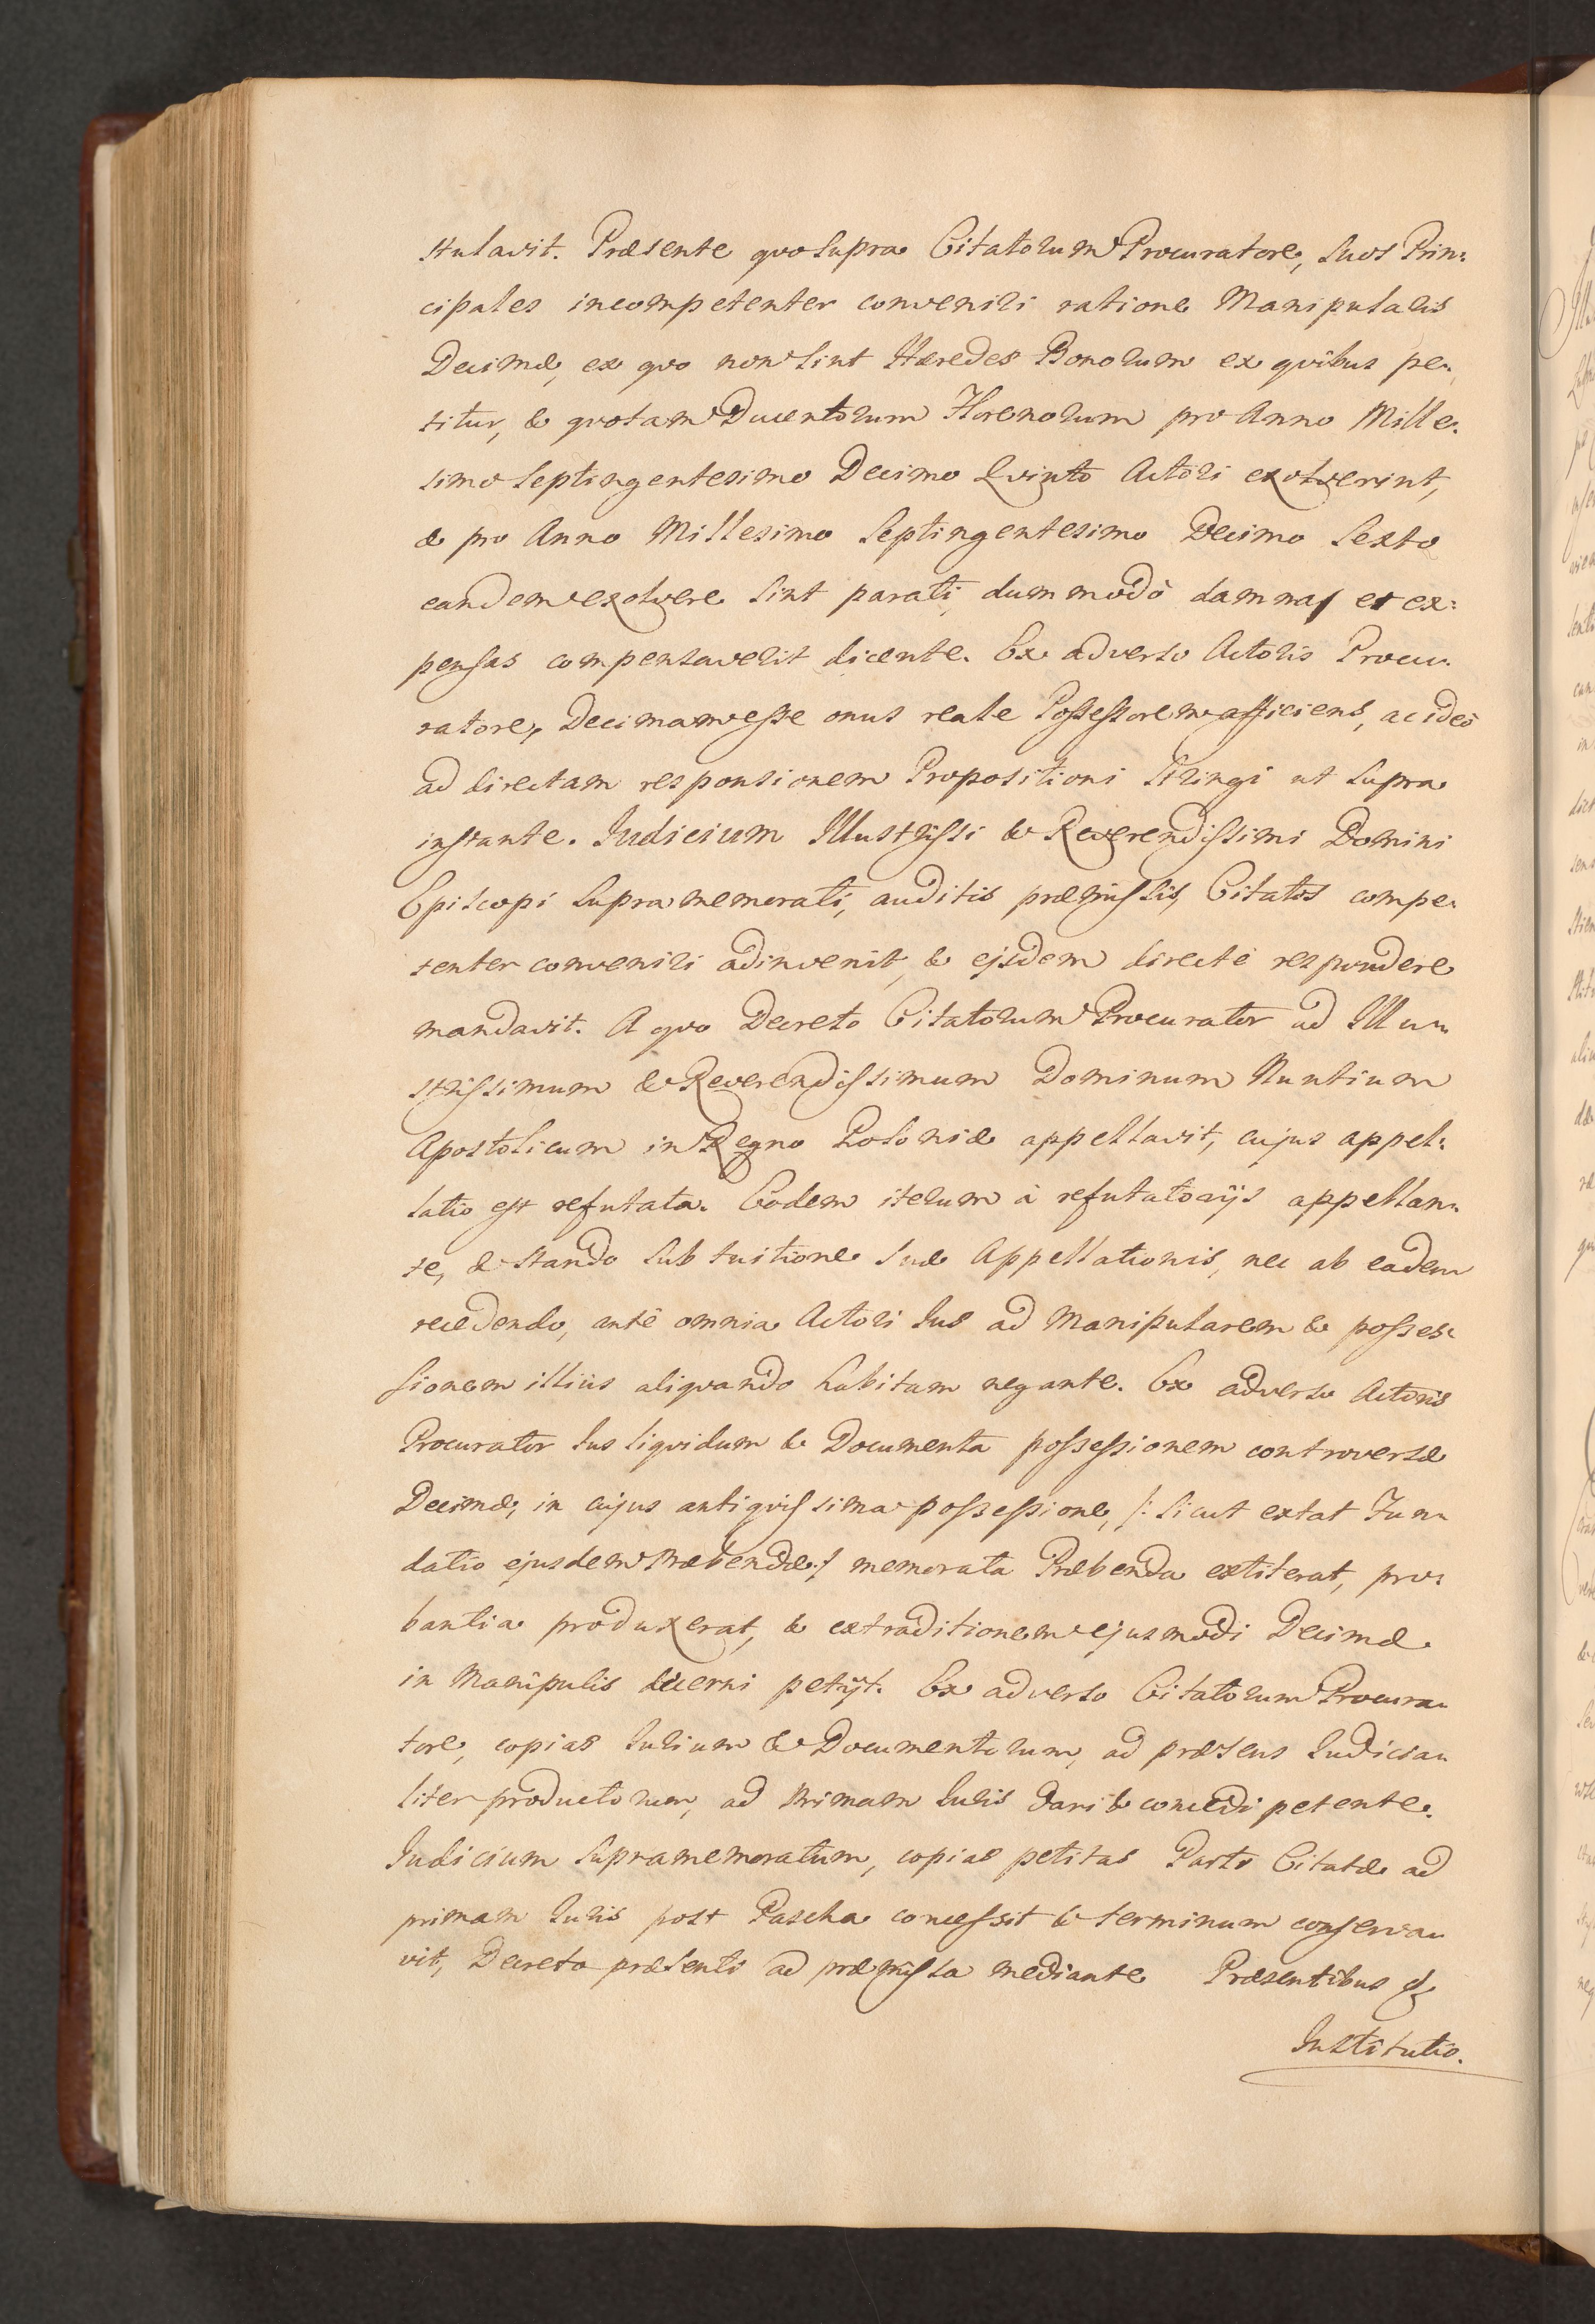 stulavit. Præsente quo supra Citatorum Procuratore, suos Prin:
cipales incompetenter conveniri ratione Manipularis
Decimæ, ex quo non sint Hæredes Bonorum ex quibus pe:
titur, & quotam Ducentorum Florenorum pro Anno Mille:
simo Septingentesimo Decimo Quinto Actori exolverint,
& pro Anno Millesimo Septingentesimo Decimo Sexto
eandem exolvere sint parati, dummodò damna et ex:
pensas compensaverit dicente. Ex adverso Actoris Procu:
ratore, Decimam esse onus reale Possessorem afficiens, ac ideò
ad directam responsionem Propositioni stringi ut supra
instante. Judicium Illustrissi & Reverendissimi Domini
Episcopi supramemorati, auditis præmissis, Citatos compe:
tenter conveniri adinvenit, & ejsdem directè respondere
mandavit. A quo Decreto Citatorum Procurator ad Illu:
strissimum & Reverendissimum Dominum Nuntium
Apostolicum in Regno Poloniæ appellavit, cujus appel:
latio est refutata. Eodem iterum à refutatorijs appellan:
te, & stando sub tuitione suæ Appellationis, nec ab eadem
recedendo, antè omnia Actori Jus ad Manipularem & posses:
sionem illius aliquando habitam negante. Ex adverso Actoris
Procurator Jus liquidum & Documenta possessionem controversæ
Decimæ, in cujus antiquissima possessione, /: sicut extat Fun:
datio ejusdem Præbendæ :/ memorata Præbenda extiterat, pro:
bantia produxerat, & extraditionem ejusmodi Decimæ
in Manipulis decerni petijt. Ex adverso Citatorum Procura:
tore, copias Jurium & Documentorum, ad præsens Judicia:
liter productorum, ad Primam Juris dari & concedi petente.
Judicium supramemoratum, copias petitas Parti Citatæ ad
primam Juris post Pascha concessit & terminum conserva:
vit, Decreto præsenti ad præmissa mediante Præsentibus &
Institutio.